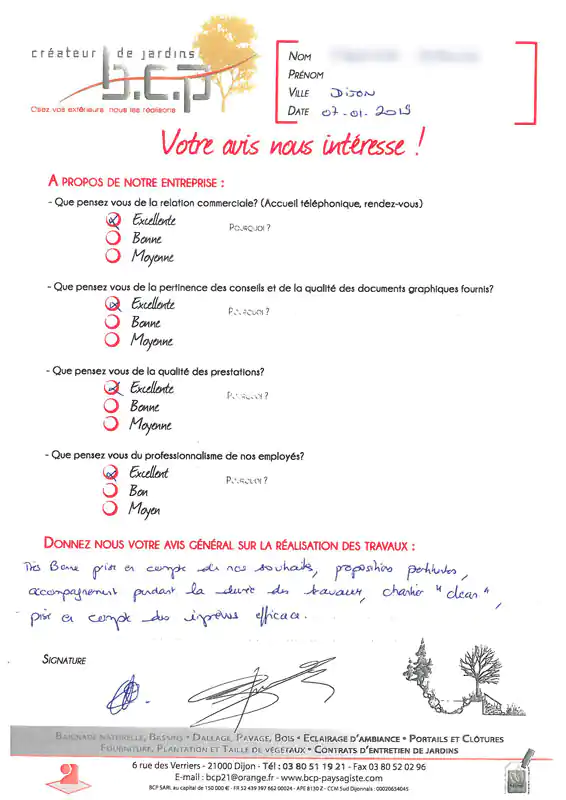 créateur de jardins
b.c.p
Osez vos extérieurs nous les réalisons
NOM
PRÉNOM
VILLE DIJON
DATE 07-01-2019
Votre avis nous intéresse !
A PROPOS DE NOTRE ENTREPRISE :
- Que pensez vous de la relation commerciale? (Accueil téléphonique, rendez-vous)
Excellente
POURQUOI ?
Bonne
Moyenne
- Que pensez vous de la pertinence des conseils et de la qualité des documents graphiques fournis?
Excellente
POURQUOI ?
Bonne
Moyenne
- Que pensez vous de la qualité des prestations?
Excellente
POURQUOI ?
Bonne
Moyenne
- Que pensez vous du professionnalisme de nos employés?
Excellent
POURQUOI ?
Bon
Moyen
DONNEZ NOUS VOTRE AVIS GÉNÉRAL SUR LA RÉALISATION DES TRAVAUX :
Très Bonne prise en compte de nos souhaits, propositions pertinentes,
accompagnement pendant la durée des travaux, chantier "clean",
prise en compte des imprévus efficace.
SIGNATURE
BAIGNADE NATURELLE, BASSINS • DALLAGE, PAVAGE, BOIS • ECLAIRAGE D'AMBIANCE • PORTAILS ET CLÔTURES
FOURNITURE, PLANTATION ET TAILLE DE VÉGÉTAUX • CONTRATS D'ENTRETIEN DE JARDINS
6 rue des Verriers - 21000 Dijon - Tél : 03 80 51 19 21 - Fax 03 80 52 02 96
E-mail : bcp21@orange.fr - www.bcp-paysagiste.com
BCP SARL au capital de 150 000 € - FR 52 439 397 662 00024 - APE 8130 Z - CCM Sud Dijonnais : 00020654045